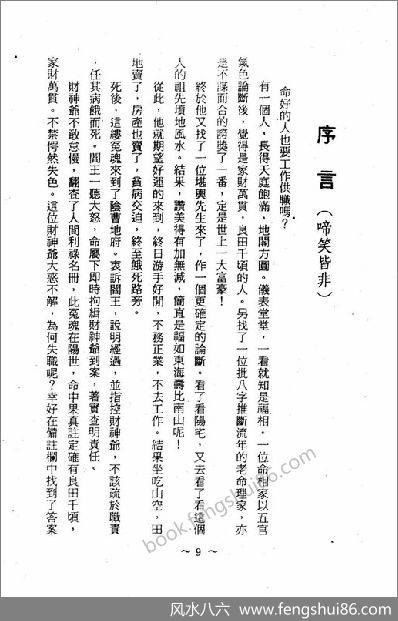 序言(啼笑皆非)
命好的人也要工作供職嗎?
有一個人,長得天庭飽滿,地閣方圓。儀表堂堂,一看就知是福相,一位命相家以五官
氣色論斷後,覺得是家財萬貫,良田千頃的人。另找了一位批八字推斷流年的老命理家,亦
是不謀而合的誇獎了一番,定是世上一大富豪!
終於他又找了一位堪輿先生來了,作一個更確定的論斷。看了看陽宅,又去看了看這個
人的祖先墳地風水。結果,讚美得有加無減,簡直是福如東海壽比南山呢!
從此,他就期望好運的來到,終日游手好閒,不務正業,不去工作。結果坐吃山空,田
地賣了,房產也賣了,貧病交迫,終至餓死路旁。
死後,這縷冤魂來到了陰曹地府。哀訴閻王,說明經過,並指控財神爺,不該疏於職責
,任其病餓而死。閻王一聽大怒,命屬下即時拘緝財神爺到案,著實查明責任。
財神爺不敢怠慢,翻查了人間利祿名冊,此冤魂在陽世,命中果真註定確有良田千頃,
家財萬貫。不禁愕然失色。這位財神爺大惑不解,為何失職呢?幸好在備註欄中找到了答案
~9~
book.fengshui86.com
风水八六 - www.fengshui86.com